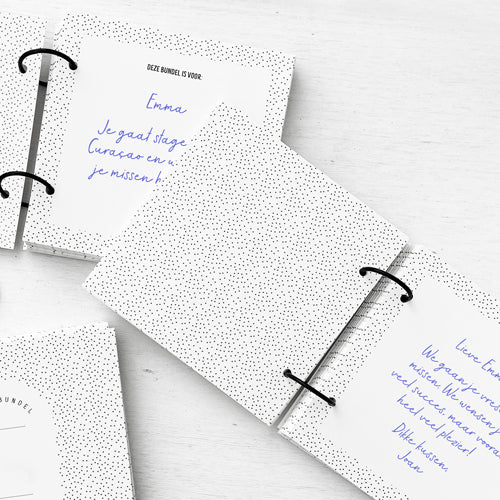 DEZE BUNDEL IS VOOR:
Emma
Je gaat stage
Curaçao en
je missen
Lieve Emm
We gaan je vres
missen. We wensen j
veel succes, maar voora
heel veel plezier!
Dikke kussen,
Joan
BUNDEL